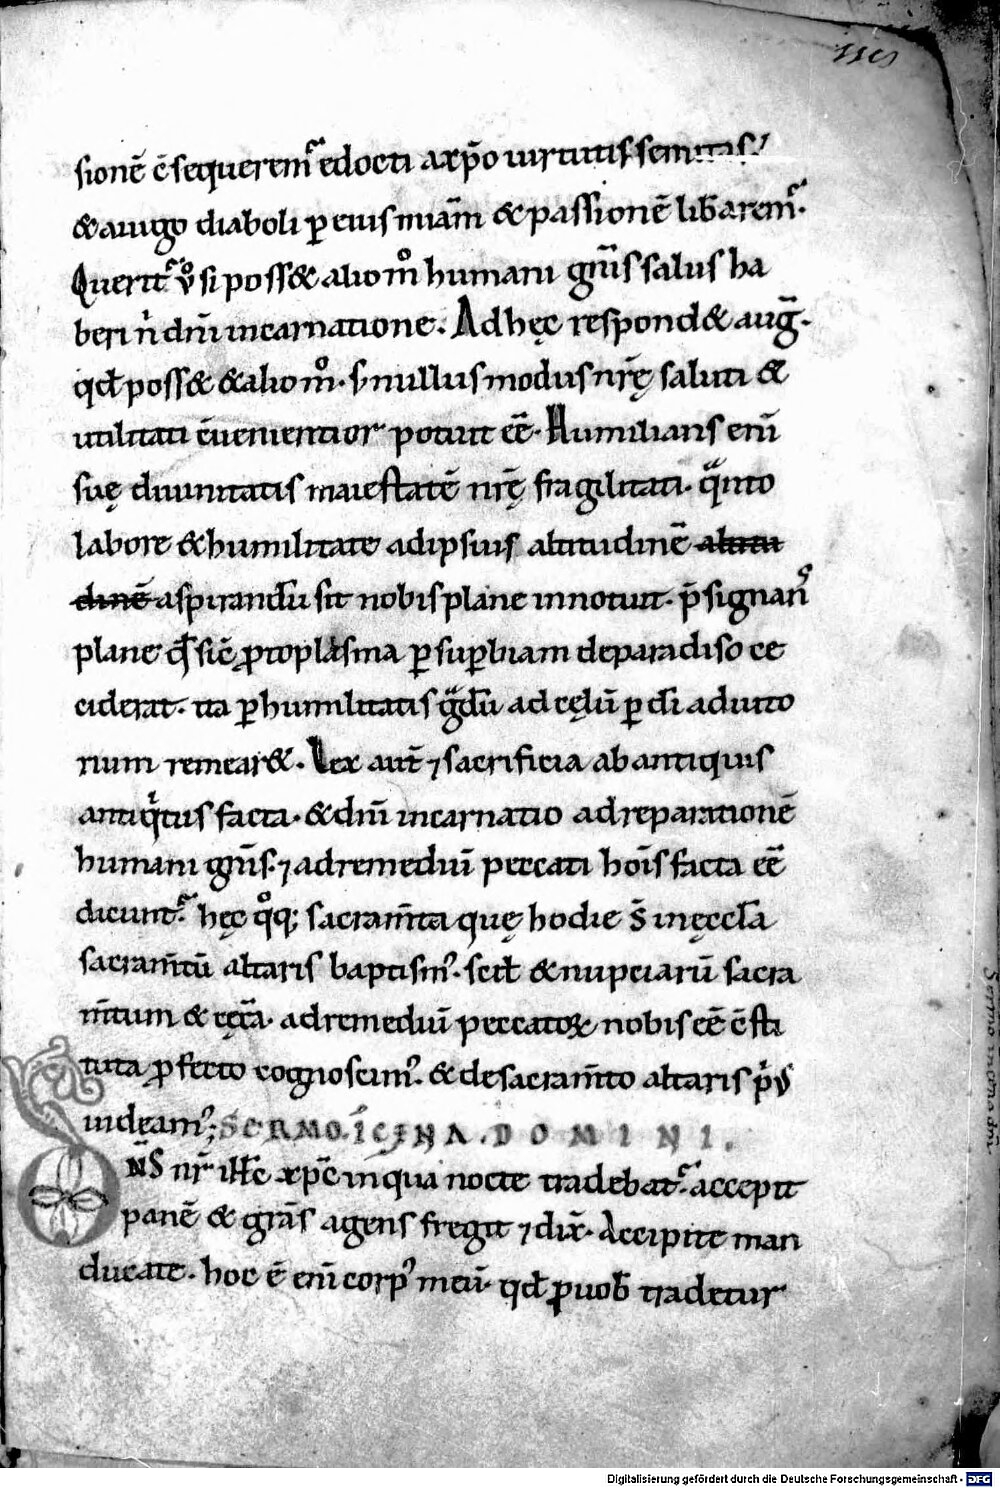 sionē c̄sequerem᷑ edocti a xp̄o uirtutis semitas,
& a iugo diaboli ꝑ eius mīam & passionē lib̄arem᷑.
Querit᷑ ỽ si poss& alio mͦ humani gn̄is salus ha
beri n̄ dn̄i incarnatione. Ad hęc respond& aug̅.
qđ poss& & alio mͦ. s; nullus modus nr̄ę saluti &
utilitati c̄uenientior potuit ēē. Humilians eni̅
suę diuinitatis maiestatē nr̄ę fragilitati. qͣnto
labore & humilitate ad ipsius altitudinē altitu
dinē aspirandū sit nobis plane innotuit. p̄signans
plane qđ sic̄ ꝓtoplasma ꝑ suꝑbiam de paradiso ce
ciderat. ita ꝑ humilitatis gͣdū ad cęlū ꝑ di̅ adiuto
rium remear&. Lex aut̄ ⁊ sacrificia ab antiquis
antiqͥtus facta. & dn̄i incarnatio ad reparationē
humani gn̄is. ⁊ ad remediū peccati hoīs facta ēē
dicunt᷑. hęc qͦq; sacram̄ta quę hodie s̄ in ęccl̄a
sacram̄tū altaris baptism᷒. scil̄ & nupciarū sacra
m̄tum & cęt̄a. ad remediū peccatoꝝ nobis ēē c̄sti
tuta ꝓfecto cognoscim᷒. & de sacram̄to altaris p̄us
uideam᷒;
SERMO. Ī CENA. DOMINI.
DN̄S nr̄ ih̄c xp̄c in qua nocte tradebat᷑. accepit
panē & grās agens fregit ⁊ dix̄. Accipite man
ducate. hoc ē eni̅ corp᷒ meū. qđ ꝓ uob̄ tradetur
Digitalisierung gefördert durch die Deutsche Forschungsgemeinschaft - DFG